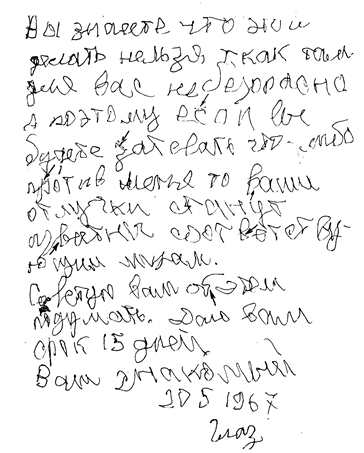 Вы знаете что это
делать нельзя, т.как там
для вас небезопасно
а поэтому если вы
будете затевать что-либо
против меня то ваши
отлучки станут
известны соответству-
ющим лицам.
Советую вам об этом
подумать. Даю вам
срок 15 дней
Ваш знакомый
20 5 1967